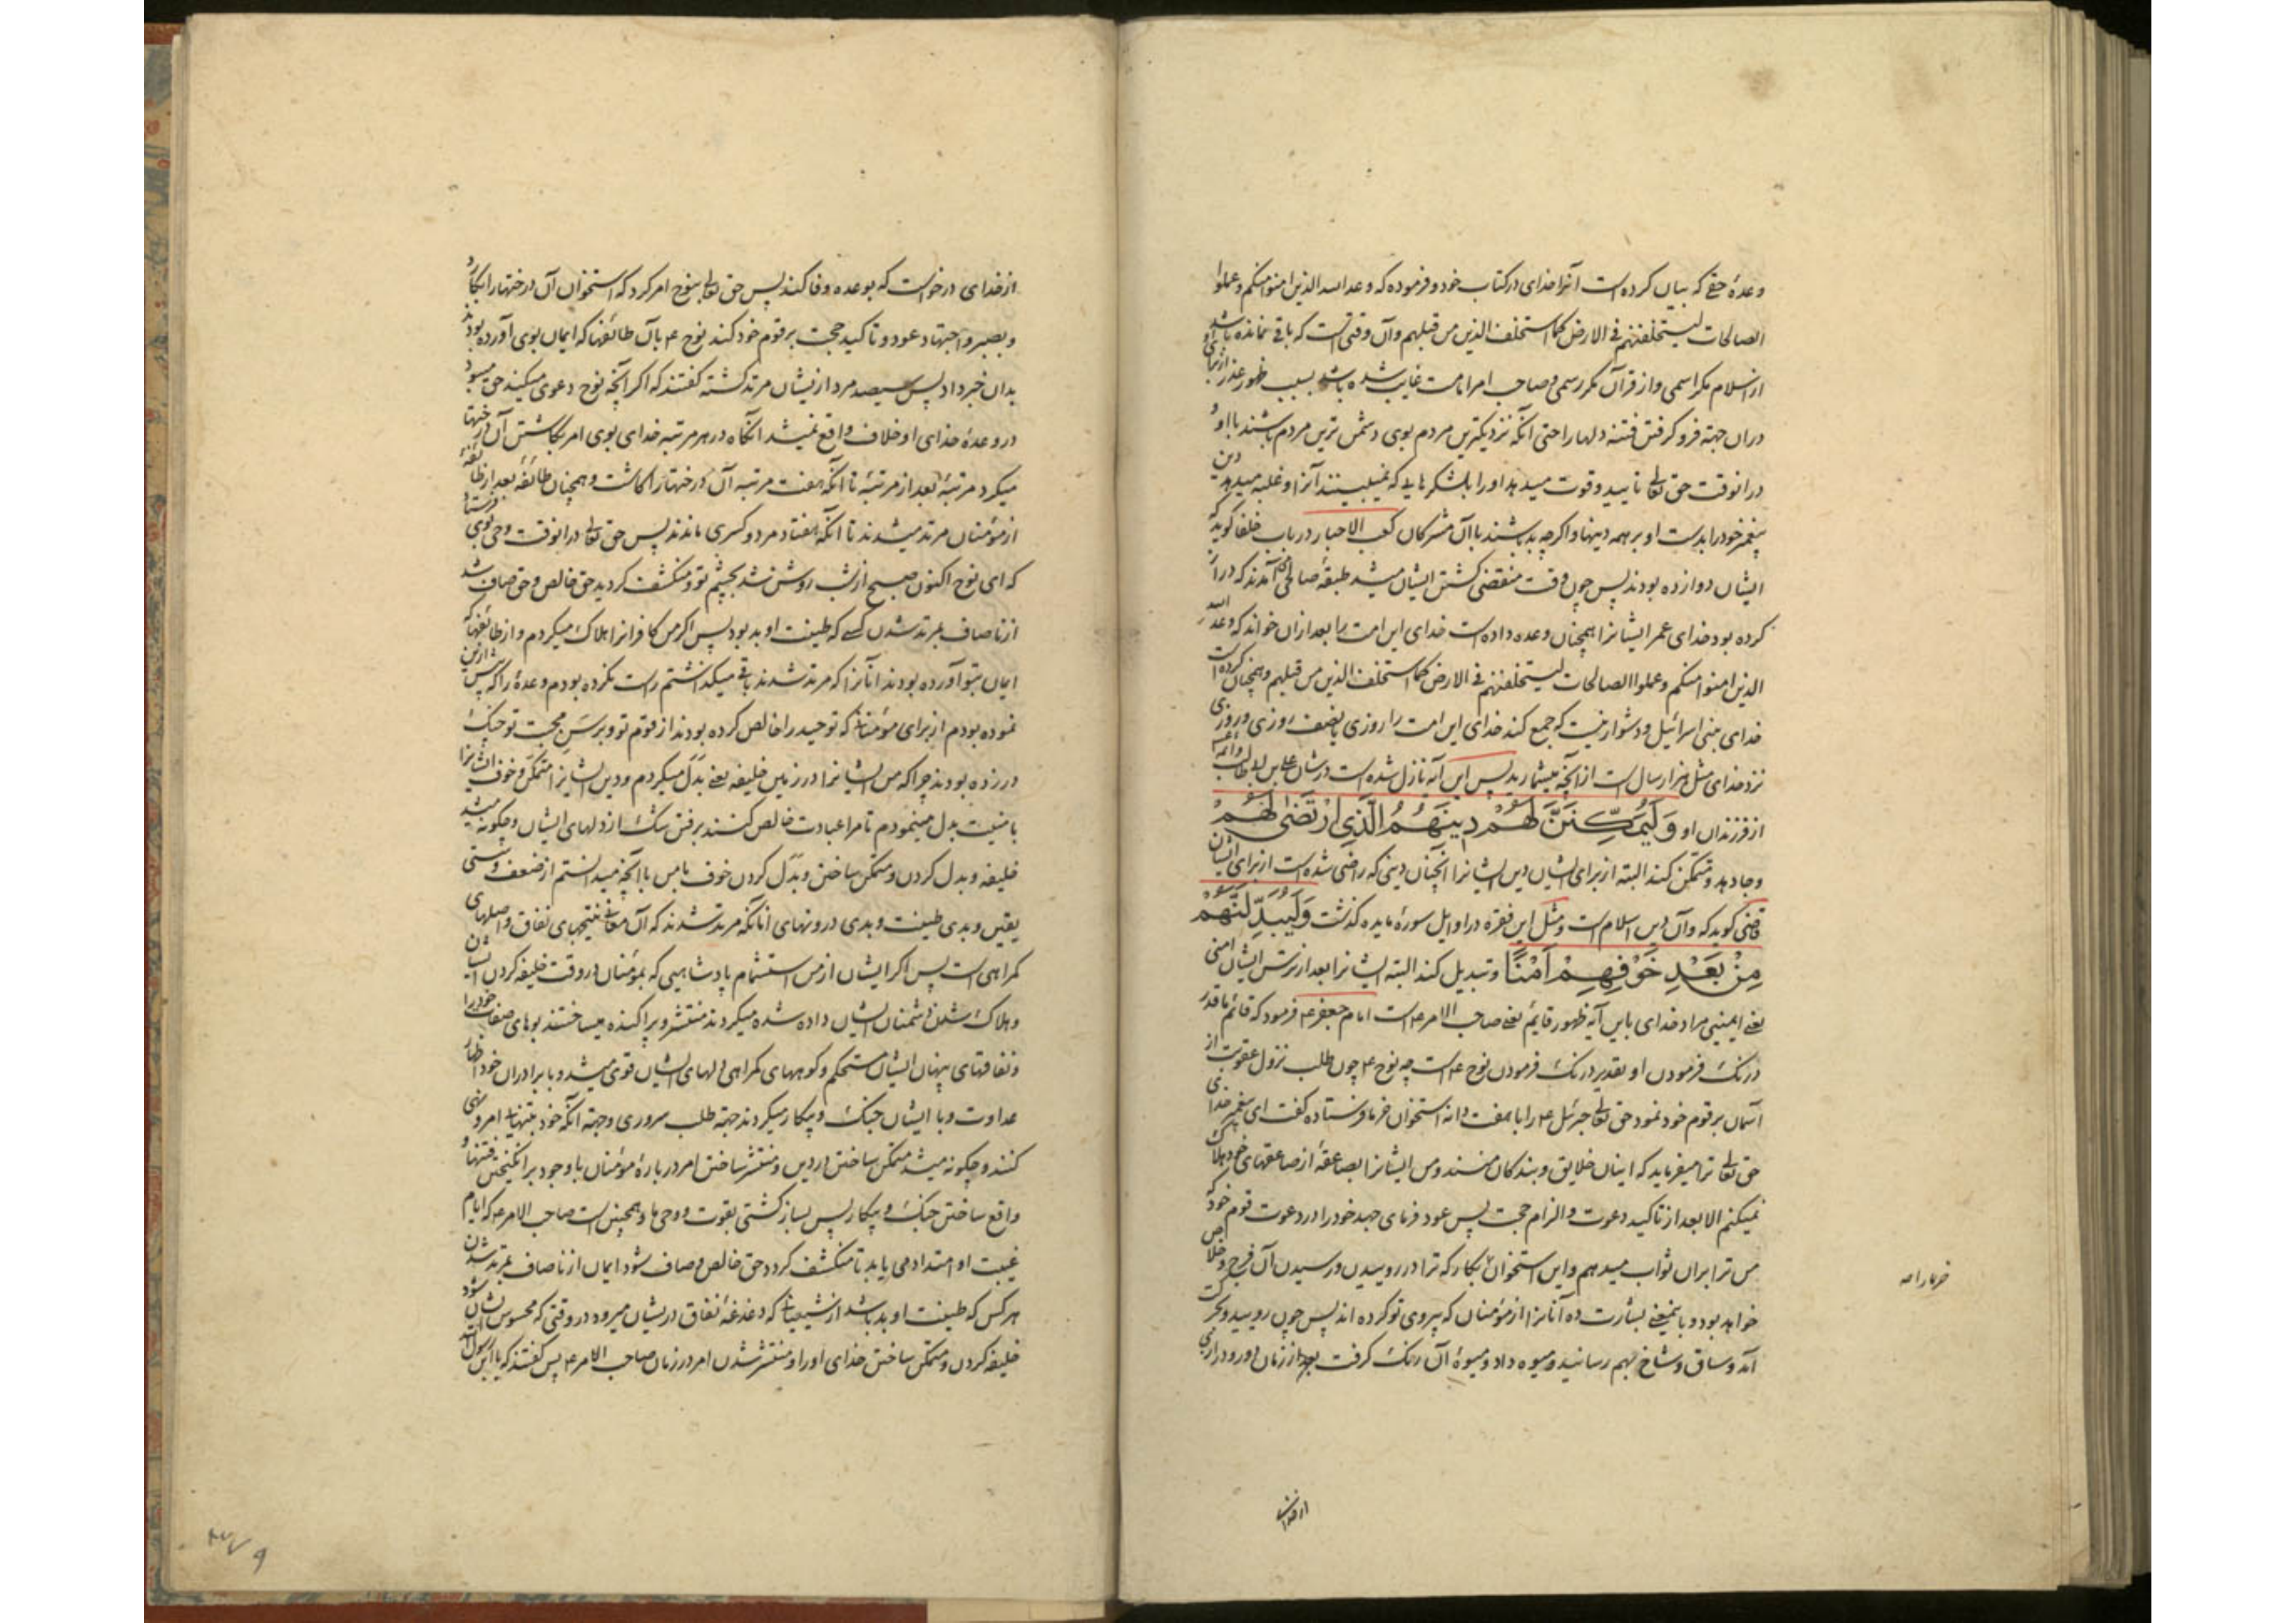 وعدهٔ حقی که بیان کرده است آنرا خدای در کتاب خود و فرموده که وعد الله الذین امنوا منکم و عملوا
الصالحات لیستخلفنهم فی الارض کما استخلف الذین من قبلهم و آن وقتی است که باقی نمانده باشد
از اسلام مگر اسمی و از قرآن مگر رسمی و صاحب امر امامت غایب شده باشد بسبب ظهور عذر از برای او
در آن جهته فرو گرفتن فتنه دلها را حتی آنکه نزدیکترین مردم بوی دشمن ترین مردم باشند با او و
در آنوقت حق تعالی تایید و قوت میدهد او را بلشکرهایی که نمی‌بینند آنرا و غلبه میدهد دین
پیغمبر خود را بدست او بر همه دینها و اگرچه بد باشند با آن مشرکان کعب الاحبار در باب خلفا گوید که
ایشان دوازده بودند پس چون وقت منقضی گشتن ایشان میشد طبقهٔ صالحی آمدند که دراز
کرده بود خدای عمر ایشانرا همچنان وعده داده است خدای این امت را بعد از آن خواند که وعد الله
الذین امنوا منکم و عملوا الصالحات لیستخلفنهم فی الارض کما استخلف الذین من قبلهم و همچنان کرده است
خدای ببنی اسرائیل و دشوار نیست که جمع کند خدای این امت را روزی یا نصف روزی و روزی
نزد خدای مثل هزار سال است از آنچه میشمارید پس این آیه نازل شده است در شان علی بن ابی طالب و ائمه
از فرزندان او وَلَیُمَکِّنَنَّ لَهُمْ دِینَهُمُ الَّذِی ارْتَضٰی لَهُمْ
و جا دهد و متمکن کند البته از برای ایشان دین ایشانرا آنچنان دینی که راضی شده است از برای ایشان
قاضی گوید که و آن دین اسلام است و مثل این فقره در اوایل سورهٔ مایده گذشت وَلَیُبَدِّلَنَّهُمْ
مِنْ بَعْدِ خَوْفِهِمْ اَمْنًا و تبدیل کند البته ایشانرا بعد از ترس ایشان امنی
یعنی ایمنیی مراد خدای باین آیه ظهور قایم یعنی صاحب الامر ع است امام جعفر ع فرمود که قائم ما قدر
درنگ فرمودن او بقدیر درنگ فرمودن نوح ع است چه نوح ع چون طلب نزول عقوبت از
آسمان بر قوم خود نمود حق تعالی جبرئیل ع را با هفت دانه استخوان خرما فرستاده گفت ای پیغمبر خدای
حق تعالی ترا میفرماید که اینان خلایق و بندگان منند و من ایشانرا بصاعقهٔ از صاعقهای خود هلاک
نمیکنم الا بعد از تاکید دعوت و الزام حجت پس عود فرمای جهد خود را در دعوت قوم خود که
من ترا بران ثواب میدهم و این استخوان بکار که ترا در روییدن و رسیدن آن فرج و خلاص
خواهد بود و باینمعنی بشارت ده آنانرا از مؤمنان که پیروی تو کرده اند پس چون رویید و بحرکت
آمد و ساق و شاخ بهم رسانید و میوه داد و میوهٔ آن رنگ گرفت بعد از زمان دور و درازی
از خدای درخواست که بوعده وفا کند پس حق تعالی بنوح امر کرد که استخوان آن درختها را بکارد
و بصبر و اجتهاد عود و تاکید حجت بر قوم خود کند نوح ع بآن طائفها که ایمان بوی آورده بودند
بدان خبر داد پس سیصد مرد از ایشان مرتد گشته گفتند که اگر آنچه نوح دعوی میکند حق میبود
در وعدهٔ خدای او خلاف واقع نمیشد آنگاه در هر مرتبه خدای بوی امر بکاشتن آن درختها
میکرد مرتبهٔ بعد از مرتبهٔ تا آنکه هفت مرتبه آن درختها را کاشت و همچنان طائفهٔ بعد از طائفهٔ
از مؤمنان مرتد میشدند تا آنکه هفتاد مرد و کسری ماندند پس حق تعالی در آنوقت وحی بوی فرستاد
که ای نوح اکنون صبح از شب روشن شد بچشم تو و منکشف گردید حق خالص و حق صاف شد
از ناصاف بمرتد شدن کسی که طینت او بد بود پس اگر من کافرانرا هلاک میکردم و از طائفها که
ایمان بتو آورده بودند آنانرا که مرتد شدند باقی میگذاشتم راست نکرده بودم وعدهٔ را که پیش ازین
نموده بودم از برای مؤمنانی که توحید را خالص کرده بودند از قوم تو و برسن محبت تو چنگ
در زده بودند چرا که من ایشانرا در زمین خلیفه یعنی بدل میکردم و دین ایشانرا متمکن و خوف ایشانرا
بامنیت بدل مینمودم تا مرا عبادت خالص کنند برفتن شک از دلهای ایشان و چگونه میشد
خلیفه و بدل کردن و متمکن ساختن و بدل کردن خوف بامن با آنچه میدانستم از ضعف و سستی
یقین و بدی طینت و بدی درونهای آنانکه مرتد شدند که آن معانی نتیجهای نفاق و اصلهای
گمراهی است پس اگر ایشان از من استشمام پادشاهیی که بمؤمنان در وقت خلیفه کردن ایشان
و هلاک شدن دشمنان ایشان داده شده میکردند منتشر و پراکنده میساختند بوهای صفات خود را
و نفاقهای پنهان ایشان مستحکم و کوههای گمراهی دلهای ایشان قوی میشد و با برادران خود اظهار
عداوت و با ایشان جنگ و پیکار میکردند جهته طلب سروری و جهته آنکه خود بتنهایی امر و نهی
کنند و چگونه میشد متمکن ساختن در دین و منتشر ساختن امر در بارهٔ مؤمنان با وجود برانگیختن فتنها و
واقع ساختن جنگ و پیکار پس بساز کشتی بقوت و وحی ما و همچنین است صاحب الامر ع که ایام
غیبت او امتداد می یابد تا منکشف گردد حق خالص و صاف شود ایمان از ناصاف بمرتد شدن
هر کس که طینت او بد باشد از شیعیانی که دغدغهٔ نفاق در ایشان میرود در وقتی که محسوس ایشان شود
خلیفه کردن و متمکن ساختن خدای او را و منتشر شدن امر در زمان صاحب الامر ع پس گفتند که یا ابن رسول الله